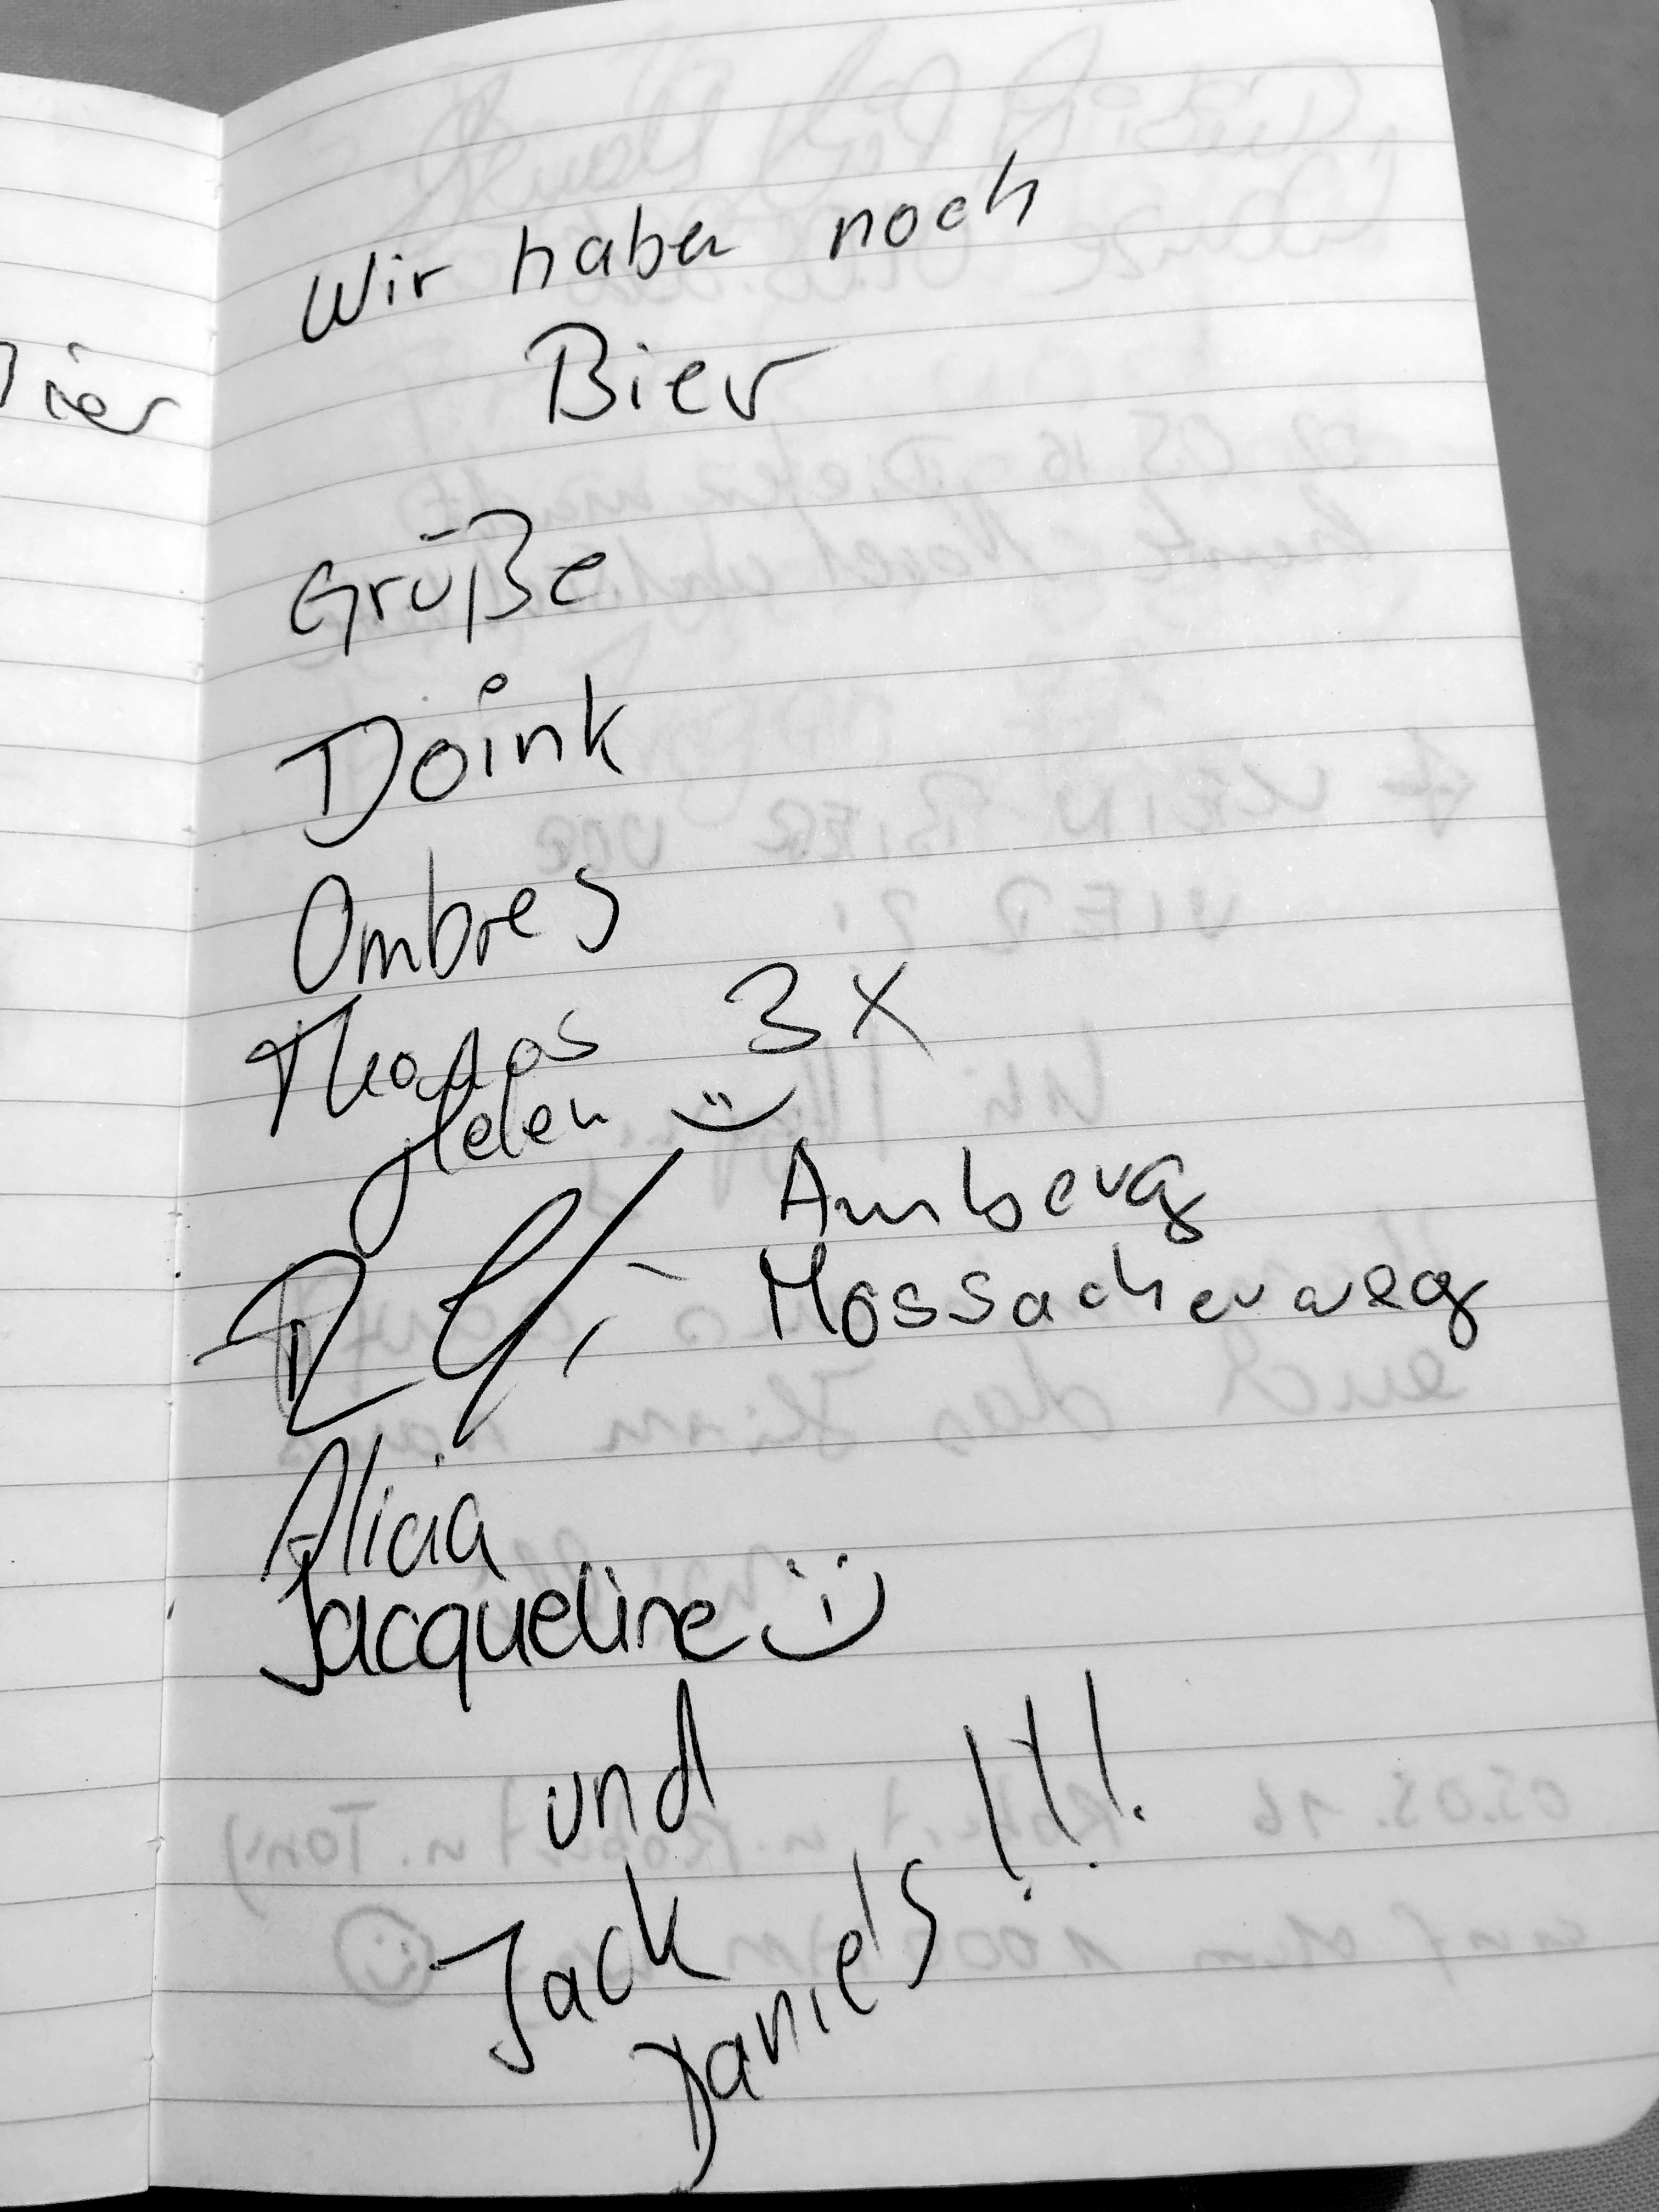 Wir haben noch
Bier
Grüße
Doink
Ombres
Thomas 3X
Helen
Amberg
Mossacherweg
Alicia
Jacqueline
und
Jack
Daniels!!!